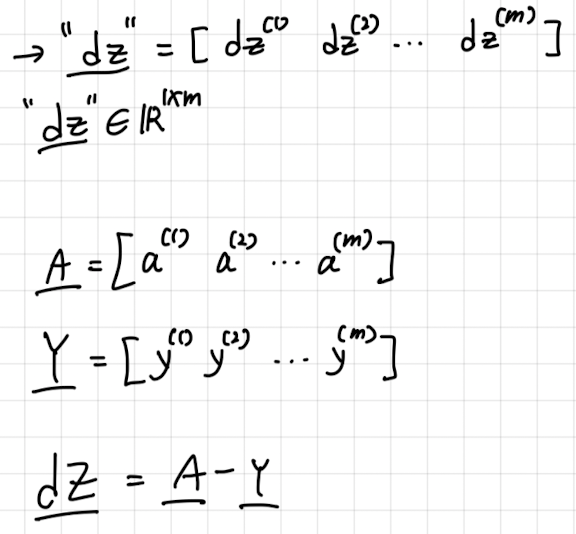 → "dz" = [ dz⁽¹⁾ dz⁽²⁾ ... dz⁽ᵐ⁾ ]
"dz" ∈ ℝ¹ˣᵐ
A = [ a⁽¹⁾ a⁽²⁾ ... a⁽ᵐ⁾ ]
Y = [ y⁽¹⁾ y⁽²⁾ ... y⁽ᵐ⁾ ]
dZ = A - Y